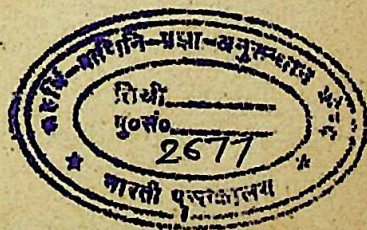 महर्षि-पाणिनि-प्रज्ञा-अनुसन्धान
तिथी
पु०सं०
2677
भारती पुस्तकालय